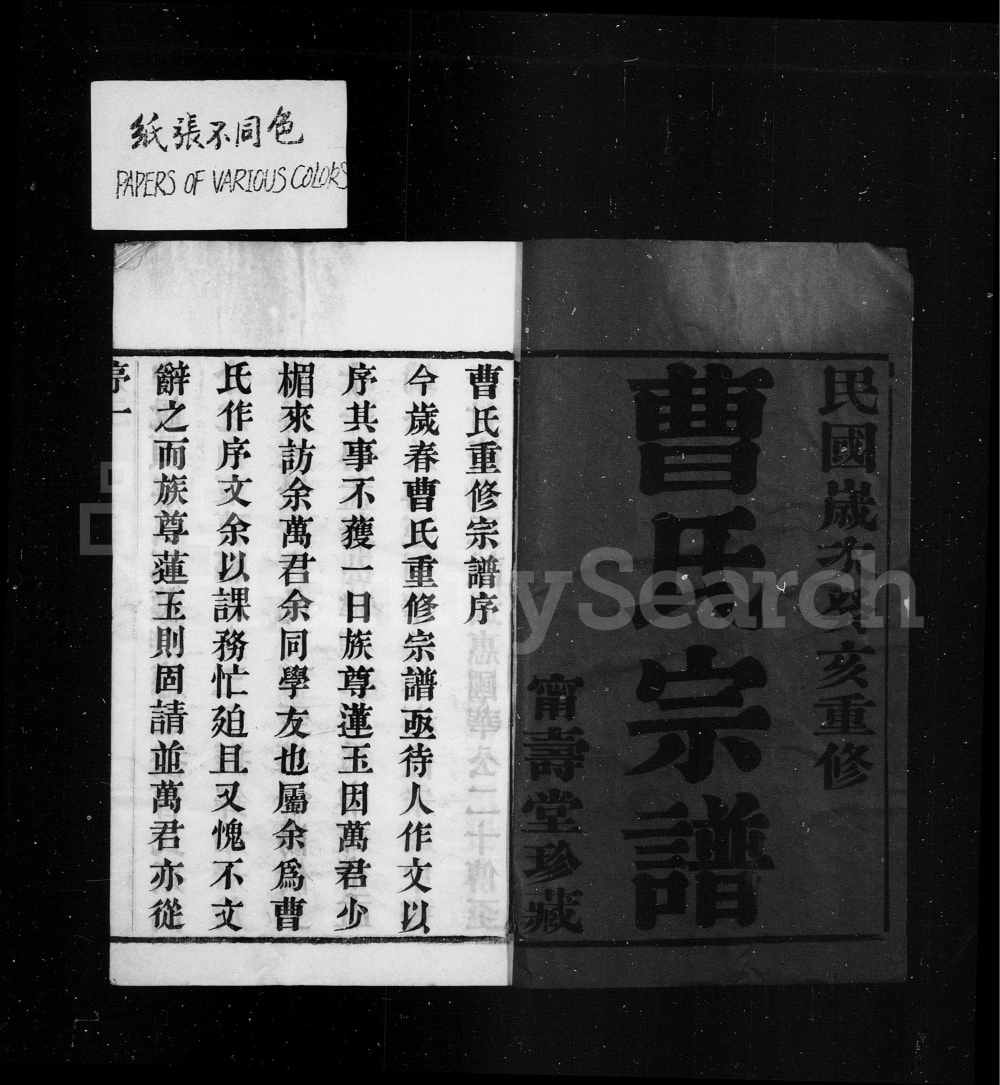 紙張不同色
PAPERS OF VARIOUS COLORS
民國歲次癸亥重修
曹氏宗譜
甯壽堂珍藏
曹氏重修宗譜序
今歲春曹氏重修宗譜亟待人作文以
序其事不獲一日族尊蓮玉因萬君少
楣來訪余萬君余同學友也屬余爲曹
氏作序文余以課務忙廹且又愧不文
辭之而族尊蓮玉則固請並萬君亦從
序一
FamilySearch